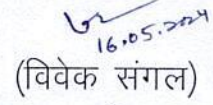 16.05.2024
(विवेक संगल)